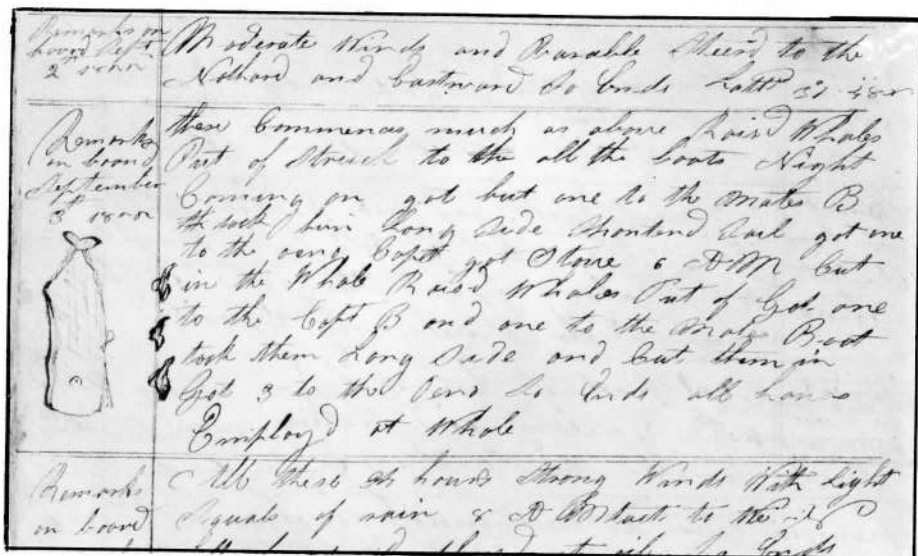 Remarks on
board Sept
2th 1822
Moderate Winds and Barable Steerd to the
Nothard and Eastward So Ends Lattd 31
Remarks
on board
September
3th 1822
these Commences much as above Raisd Whales
Put of Struck to the all the boats Night
Coming on got but one to the Mates B
took him Long Side Shortend Sail got one
to the Capt got Stove 6 AM Cut
in the Whale Raisd Whales Put of Got one
to the Capt B and one to the Mates Boat
took them Long Side and Cut them in
Got 3 to the So Ends all hands
Employd at Whale
Remarks
on board
All these 24 hours Strong Winds With Light
Squals of rain & to the